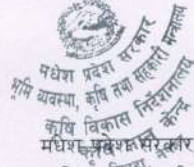 मधेश प्रदेश सरकार
भूमि व्यवस्था, कृषि तथा सहकारी मन्त्रालय
कृषि विकास निर्देशनालय
मधेश प्रदेश सरकार
केन्द्र